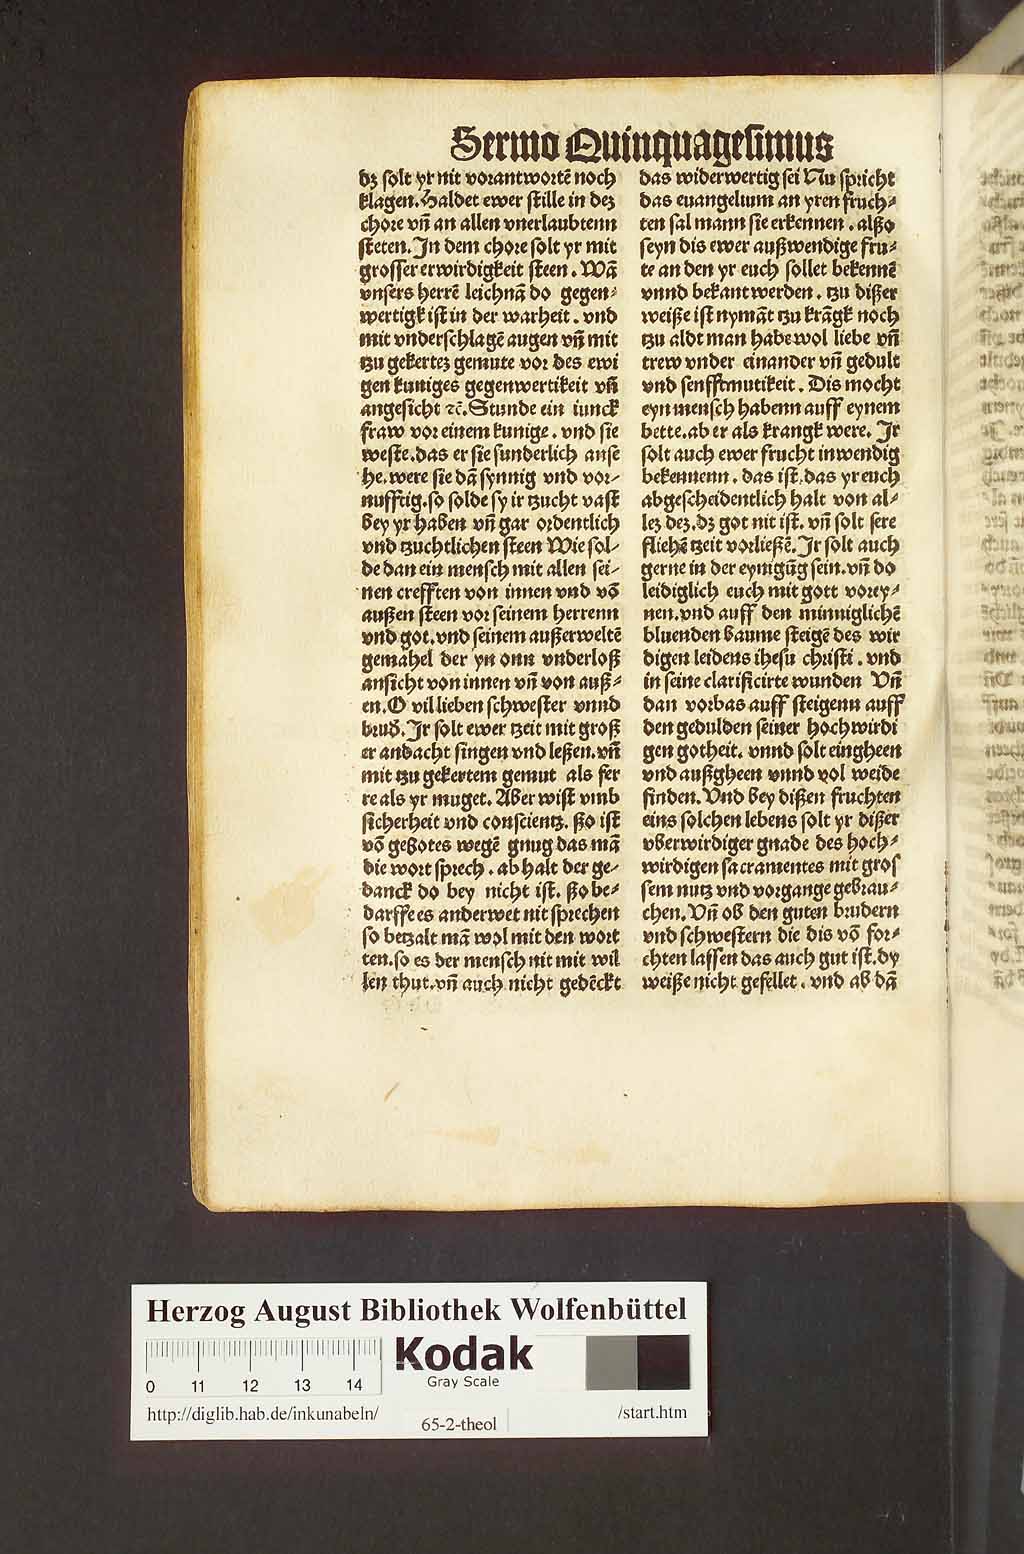 Sermo Quinquagesimus
dz solt yr nit vorantwortē noch
klagen. Haldet ewer stille in dez
chore vñ an allen vnerlaubtenn
steten. In dem chore solt yr mit
grosser erwirdigkeit steen. Wā
vnsers herrē leichnā do gegen⸗
wertigk ist in der warheit. vnd
mit vnderschlagē augen vñ mit
tzu gekertez gemute vor des ewi
gen kuniges gegenwertikeit vñ
angesicht ⁊c̄. Stunde ein iunck
fraw vor einem kunige. vnd sie
weste. das er sie sunderlich anse
he. were sie dā synnig vnd vor⸗
nufftig. so solde sy ir tzucht vast
bey yr haben vñ gar ordentlich
vnd tzuchtlichen steen Wie sol⸗
de dan ein mensch mit allen sei⸗
nen crefften von innen vnd vō
außen steen vor seinem herrenn
vnd got. vnd seinem außerweltē
gemahel der yn onn vnderloß
ansicht von innen vñ von auß⸗
en. O vil lieben schwester vnnd
brud̄. Ir solt ewer tzeit mit groß
er andacht singen vnd leßen. vñ
mit tzu gekertem gemut als fer
re als yr muget. Aber wist vmb
sicherheit vnd conscientz. ßo ist
vō gebotes wegē gnug das mā
die wort sprech. ab halt der ge⸗
danck do bey nicht ist. ßo be⸗
darffe es anderwet nit sprechen
so betzalt mā wol mit den wort
ten. so es der mensch nit mit wil
len thut. vñ auch nicht gedēckt
das widerwertig sei Nu spricht
das euangelium an yren fruch⸗
ten sal mann sie erkennen. alßo
seyn dis ewer außwendige fru⸗
te an den yr euch sollet bekennē
vnnd bekant werden. tzu dißer
weiße ist nymāt tzu krāgk noch
tzu aldt man habe wol liebe vñ
trew vnder einander vñ gedult
vnd senfftmutikeit. Dis mocht
eyn mensch habenn auff eynem
bette. ab er als krangk were. Ir
solt auch ewer frucht inwendig
bekennenn. das ist. das yr euch
abgescheidentlich halt von al⸗
lez dez. dz got nit ist. vñ solt sere
fliehē tzeit vorließē. Ir solt auch
gerne in der eynigūg sein. vñ do
leidiglich euch mit gott vorey⸗
nen. vnd auff den minniglichē
bluenden baume steigē des wir
digen leidens ihesu christi. vnd
in seine clarificirte wunden Vñ
dan vorbas auff steigenn auff
den gedulden seiner hochwirdi
gen gotheit. vnnd solt eingheen
vnd außgheen vnnd vol weide
finden. Vnd bey dißen fruchten
eins solchen lebens solt yr dißer
vberwirdiger gnade des hoch⸗
wirdigen sacramentes mit gros
sem nutz vnd vorgange gebrau⸗
chen. Vñ ob den guten brudern
vnd schwestern die dis vō for⸗
chten lassen das auch gut ist. dy
weiße nicht gefellet. vnd ab dā
Herzog August Bibliothek Wolfenbüttel
Kodak
Gray Scale
0 11 12 13 14
http://diglib.hab.de/inkunabeln/
65-2-theol
/start.htm